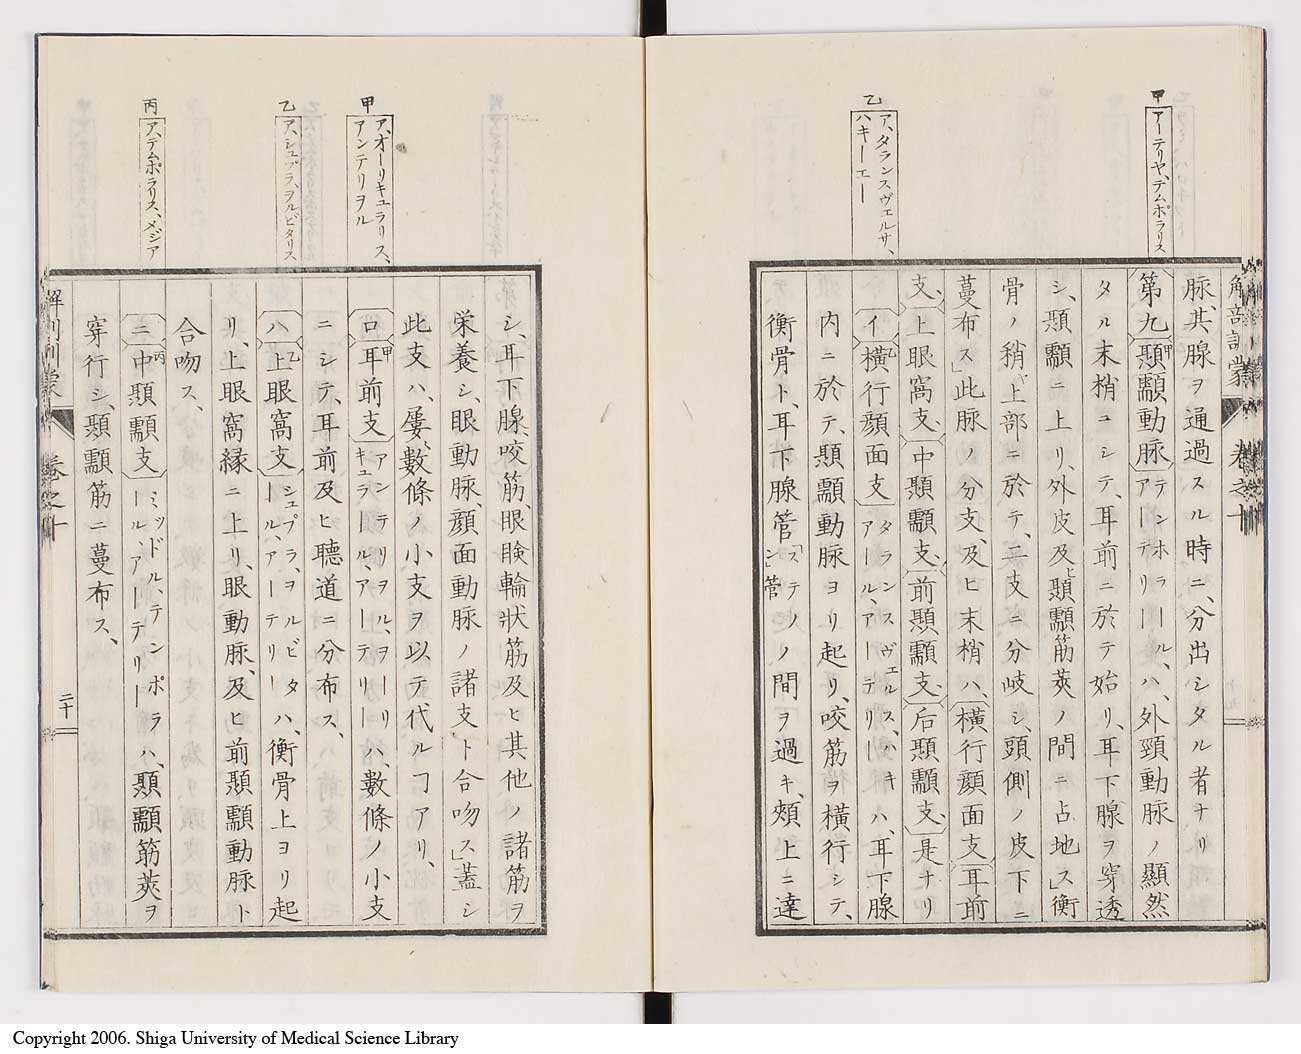 甲
アーテリヤ、テムポラリス
乙
ア、タランスヴェルサ、
ハキーエー
解剖訓蒙 卷之十
脉、其腺ヲ通過スル時ニ、分出シタル者ナリ
第九 顳顬動脉 テンホラール、アーテリー ハ、外頸動脉ノ顯然
タル末梢ニシテ、耳前ニ於テ始リ、耳下腺ヲ穿透
シ、顳顬ニ上リ、外皮及ヒ顳顬筋莢ノ間ニ占地ス」衡
骨ノ稍上部ニ於テ、二支ニ分岐シ、頭側ノ皮下ニ
蔓布ス」此脉ノ分支、及ヒ末梢ハ、横行顔面支、耳前
支、上眼窩支、中顳顬支、前顳顬支、后顳顬支、是ナリ
イ 横行顔面支 タランスヴェルス、ハキアール、アーテリー ハ、耳下腺
内ニ於テ、顳顬動脉ヨリ起リ、咬筋ヲ横行シテ、
衡骨ト、耳下腺管「ステノシ」管ノ間ヲ過キ、頰上ニ達
甲
ア、オーリキュラリス、
アンテリヲル
乙
ア、シュプラ、ヲルビタリス
丙
ア、テムポラリス、メジア
シ、耳下腺、咬筋、眼瞼輪状筋及ヒ其他ノ諸筋ヲ
栄養シ、眼動脉、顔面動脉ノ諸支ト合吻ス」蓋シ
此支ハ、屡、數條ノ小支ヲ以テ代ルヿアリ、
ロ 耳前支 アンテリヲル、ヲーリキュラール、アーテリー ハ、數條ノ小支
ニシテ、耳前及ヒ聴道ニ分布ス、
ハ 上眼窩支 シュプラ、ヲルビタール、アーテリー ハ、衡骨上ヨリ起
リ、上眼窩縁ニ上リ、眼動脉、及ヒ前顳顬動脉ト
合吻ス、
ニ 中顳顬支 ミッドル、テンポラール、アーテリー ハ、顳顬筋莢ヲ
穿行シ、顳顬筋ニ蔓布ス、
卷之十
二十
Copyright 2006. Shiga University of Medical Science Library